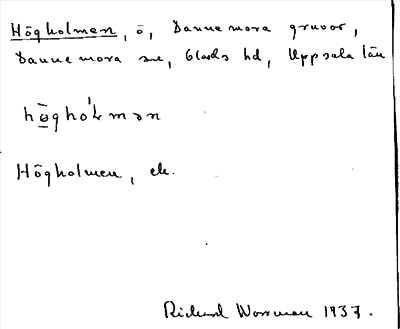 Högholmen, ö, Dannemora gruvor,
Dannemora sn, Olands hd, Uppsala län
Högholmen, ek.
Richard Worrman 1937.